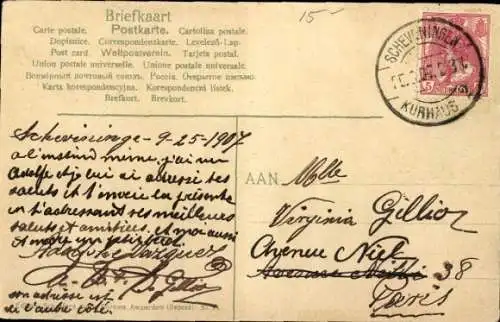 15-
Briefkaart
Carte postale. Postkarte. Cartolina postale.
Dopisnice. Correspondenzkarte. Levelező-Lap.
Post card. Weltpostverein. Tarjeta postal.
Union postale universelle. Unione postale universale.
Всемірный почтовый союзъ. Россія. Открытое письмо.
Karta korespondencyjna. Korespondenční lístek.
Brefkort. Brevkort.
SCHEVENINGEN
KURHAUS
5
Scheveningue - 9-25-1907
a l'instind meme, j'ai vu
Adolfe et je lui ai adressé tes
saluts et t'envoie la présente
en t'adressant ses meilleures
saluts et amitiées. et moi aussi
Adolphe Vazquez
son adresse est
de l'autre côté.
Amsterdam
AAN
Mlle
Virginia Gillio
Avenue Niel
Avenue 38
Paris